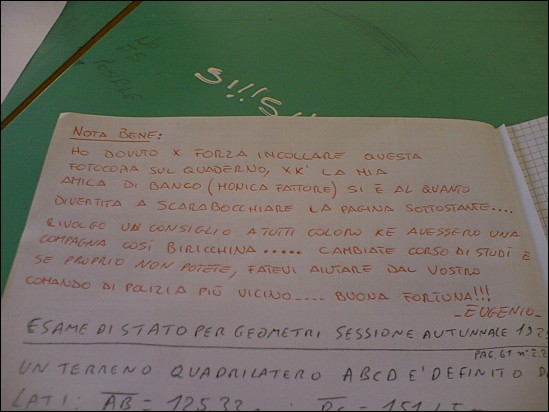 SI!!!
SI!!
NOTA BENE:
HO DOVUTO X FORZA INCOLLARE QUESTA
FOTOCOPIA SUL QUADERNO, XK' LA MIA
AMICA DI BANCO (MONICA FATTORE) SI È AL QUANTO
DIVERTITA A SCARABOCCHIARE LA PAGINA SOTTOSTANTE....
RIVOLGO UN CONSIGLIO A TUTTI COLORO KE AVESSERO UNA
COMPAGNA COSÌ BIRICCHINA..... CAMBIATE CORSO DI STUDÎ E
SE PROPRIO NON POTETE, FATEVI AIUTARE DAL VOSTRO
COMANDO DI POLIZIA PIÙ VICINO.... BUONA FORTUNA!!!
- EUGENIO -
ESAME DI STATO PER GEOMETRI SESSIONE AUTUNNALE
PAG. 61 n°
UN TERRENO QUADRILATERO ABCD E' DEFINITO
LATI: AB =